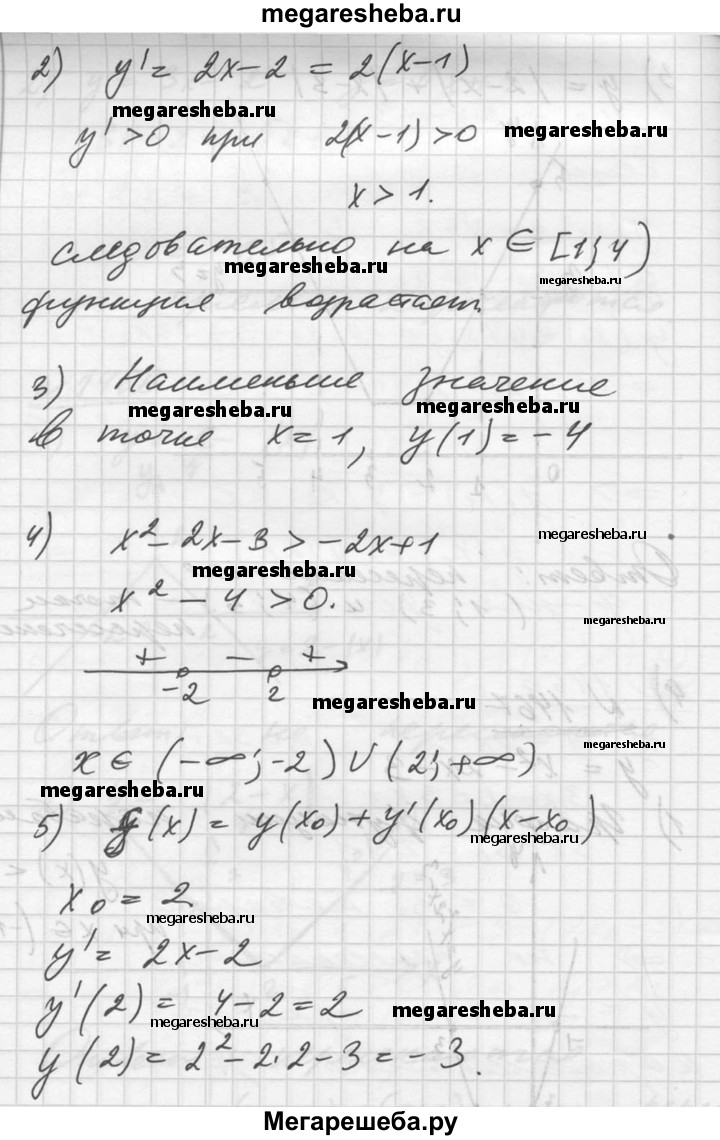 megaresheba.ru
2) y' = 2x - 2 = 2(x-1)
megaresheba.ru
y' > 0 при 2(x-1) > 0
megaresheba.ru
x > 1.
следовательно на x ∈ [1; 4)
megaresheba.ru
megaresheba.ru
функция возрастает.
3) Наименьше значение
megaresheba.ru
megaresheba.ru
в точке x = 1, y(1) = -4
4) x² - 2x - 3 > -2x + 1
megaresheba.ru
megaresheba.ru
x² - 4 > 0.
megaresheba.ru
+ - +
-2 2
megaresheba.ru
megaresheba.ru
x ∈ (-∞; -2) ∪ (2; +∞)
megaresheba.ru
5) g(x) = y(x₀) + y'(x₀)(x-x₀)
megaresheba.ru
x₀ = 2
megaresheba.ru
y' = 2x - 2
y'(2) = 4 - 2 = 2
megaresheba.ru
megaresheba.ru
y(2) = 2² - 2·2 - 3 = -3.
Мегарешеба.ру